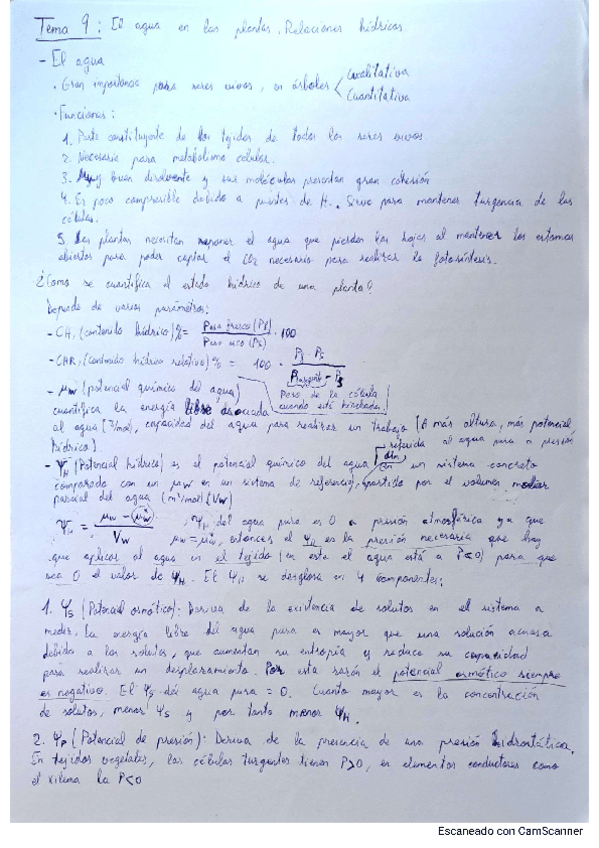 Tema 9: El agua en las plantas. Relaciones hídricas.
- El agua
· Gran importancia para seres vivos, en árboles < Cualitativa
Cuantitativa
· Funciones:
1. Parte constituyente de los tejidos de todos los seres vivos
2. Necesaria para metabolismo celular.
3. Muy buen disolvente y sus moléculas presentan gran cohesión
4. Es poco compresible debido a puentes de H. Sirve para mantener turgencia de las
células.
5. Las plantas necesitan reponer el agua que pierden las hojas al mantener los estomas
abiertos para poder captar el CO2 necesario para realizar la fotosíntesis.
¿Como se cuantifica el estado hídrico de una planta?
Depende de varios parámetros:
- CH, (contenido hídrico)% = Peso fresco (Pf) / Peso seco (Ps) · 100
- CHR, (contenido hídrico relativo)% = 100 · Pf - Ps / Pturgente - Ps
Peso de la célula
cuando está hinchada.
- μw (potencial químico del agua)
cuantifica la energía libre asociada
al agua [J/mol], capacidad del agua para realizar un trabajo [A más altura, más potencial
hídrico]
referida al agua pura a presión
atm
- ΨH (Potencial hídrico) es el potencial químico del agua en un sistema concreto
comparado con un μw en un sistema de referencia, partido por el volumen molar
parcial del agua (m³/mol) (Vw)
ΨH = μw - μw* / Vw , ΨH del agua pura es 0 a presión atmosférica ya que
μw = μw*, entonces el ΨH es la presión necesaria que hay
que aplicar al agua en el tejido (en este el agua está a P<0) para que
sea 0 el valor de ΨH. El ΨH se desglosa en 4 componentes:
1. ΨS (Potencial osmótico): Deriva de la existencia de solutos en el sistema a
medir. La energía libre del agua pura es mayor que una solución acuosa
debido a los solutos, que aumentan su entropía y reduce su capacidad
para realizar un desplazamiento. Por esta razón el potencial osmótico siempre
es negativo. El ΨS del agua pura = 0. Cuanto mayor es la concentración
de solutos, menor ΨS y por tanto menor ΨH.
2. ΨP (Potencial de presión): Deriva de la presencia de una presión hidrostática.
En tejidos vegetales, las células turgentes tienen P>0, en elementos conductores como
el xilema la P<0
Escaneado con CamScanner